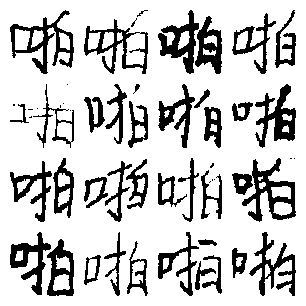 啪啪啪啪
啪啪啪啪
啪啪啪啪
啪啪啪啪